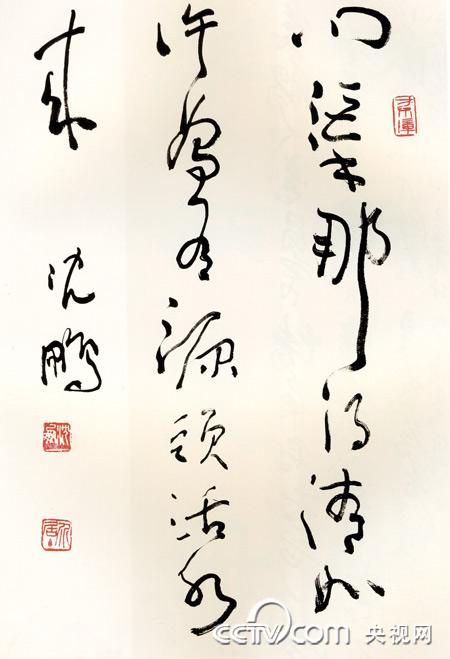 问渠那得清如
许为有源头活水
来
沈鹏
CCTV.com 央视网